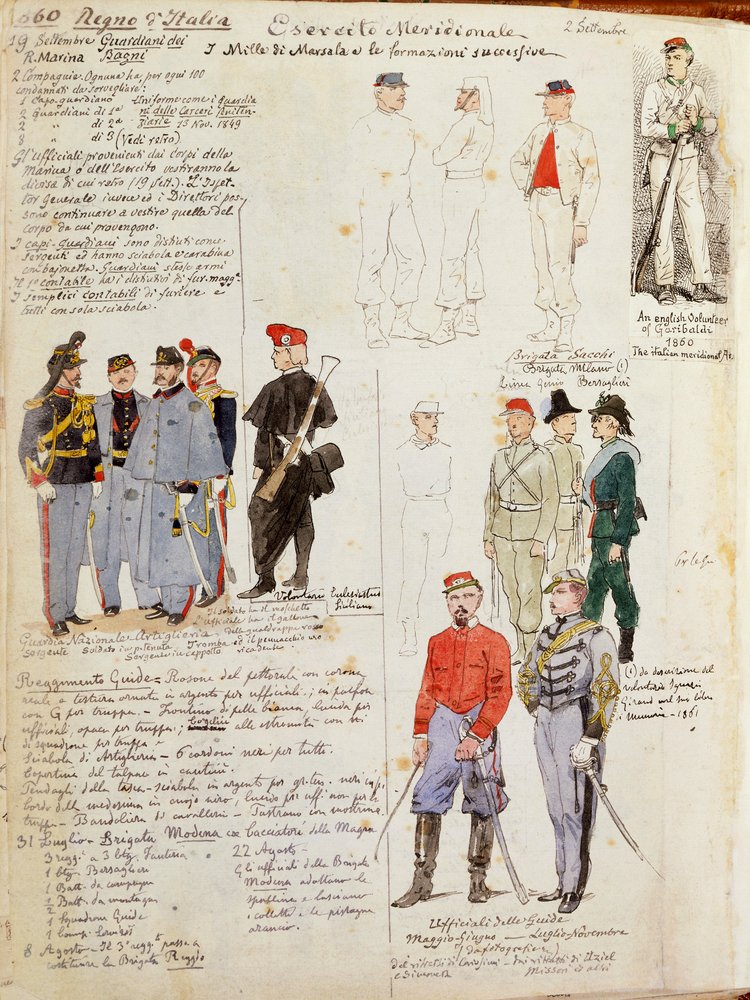 1860 Regno d'Italia
Esercito Meridionale
2 Settembre
I Mille di Marsala e le formazioni successive
19 Settembre Guardiani dei
R. Marina Bagni
2 Compagnie. Ognuna ha, per ogni 100
condannati da sorvegliare:
1 Capo-guardiano Uniforme come i Guardia
2 Guardiani di 1a ni delle Carceri Peniten-
2 " di 2a ziarie 13 Nov. 1849
8 " di 3 (Vedi retro)
Gl'ufficiali provenienti dai corpi della
Marina o dell'Esercito vestiranno la
divisa di cui retro (19 Sett.). L'Ispet-
tor Generale invece ed i Direttori pos-
sono continuare a vestire quella del
corpo da cui provengono.
I capi-guardiani sono distinti come
sergenti ed hanno sciabola e carabina
con bajonetta. Guardiani stesse armi
Il 1o contabile ha i distintivi di fur. magge
I semplici contabili di furiere e
tutti con sola sciabola.
An english Volunteer
of Garibaldi
1860
The italian meridional
Brigata Sacchi
Brigata Milano (1)
Linea Genio Bersaglieri
Volontario Ecclesiastico
Siciliano
Il soldato ha il moschetto
L'ufficiale ha il gallone
Guardia Nazionale-Artiglieria - della gualdrappa rosso
Sergente Soldato in p. tenuta Tromba ed il pennacchio
Sergente in cappotto ricadente
Reggimento Guide = Rosone del pettorale con corona
reale e testiera ornata in argento per ufficiali; in pakfon
con G per truppa. - Frontino di pelle bianca, lucida per
ufficiali, opaca per truppa; alle estremità con
di squadrone per truppa
Sciabola di Artiglieria - 6 cordoni neri per tutti.
Copertina del talpack in
Pendagli della tasca-sciabola in argento per neri
bordo della medesima in cuojo nero, lucido per uff. non per la
truppa - Bandoliera di cavalleria -
31 Luglio - Brigata Modena coi Cacciatori della Magra
3 reggi a 3 btg. Fanteria
1 btg. Bersaglieri
1 Batt. da campagna
1/2 Batt. da montagna
1 Squadrone Guide
1 Comp.
8 Agosto - Il 3o reggto passa a
costituire la Brigata Reggio
22 Agosto -
Gli ufficiali della Brigata
Modena adottano le
spalline e lasciano
i colletti e le pistagne
arancio.
(1) da descrizione del
volontario
nel suo libro
Memorie - 1861
Ufficiali delle Guide
Maggio-Giugno - Luglio-Novembre
(da fotografie)
dei ritratti di - dai ritratti di
e Missori ed altri